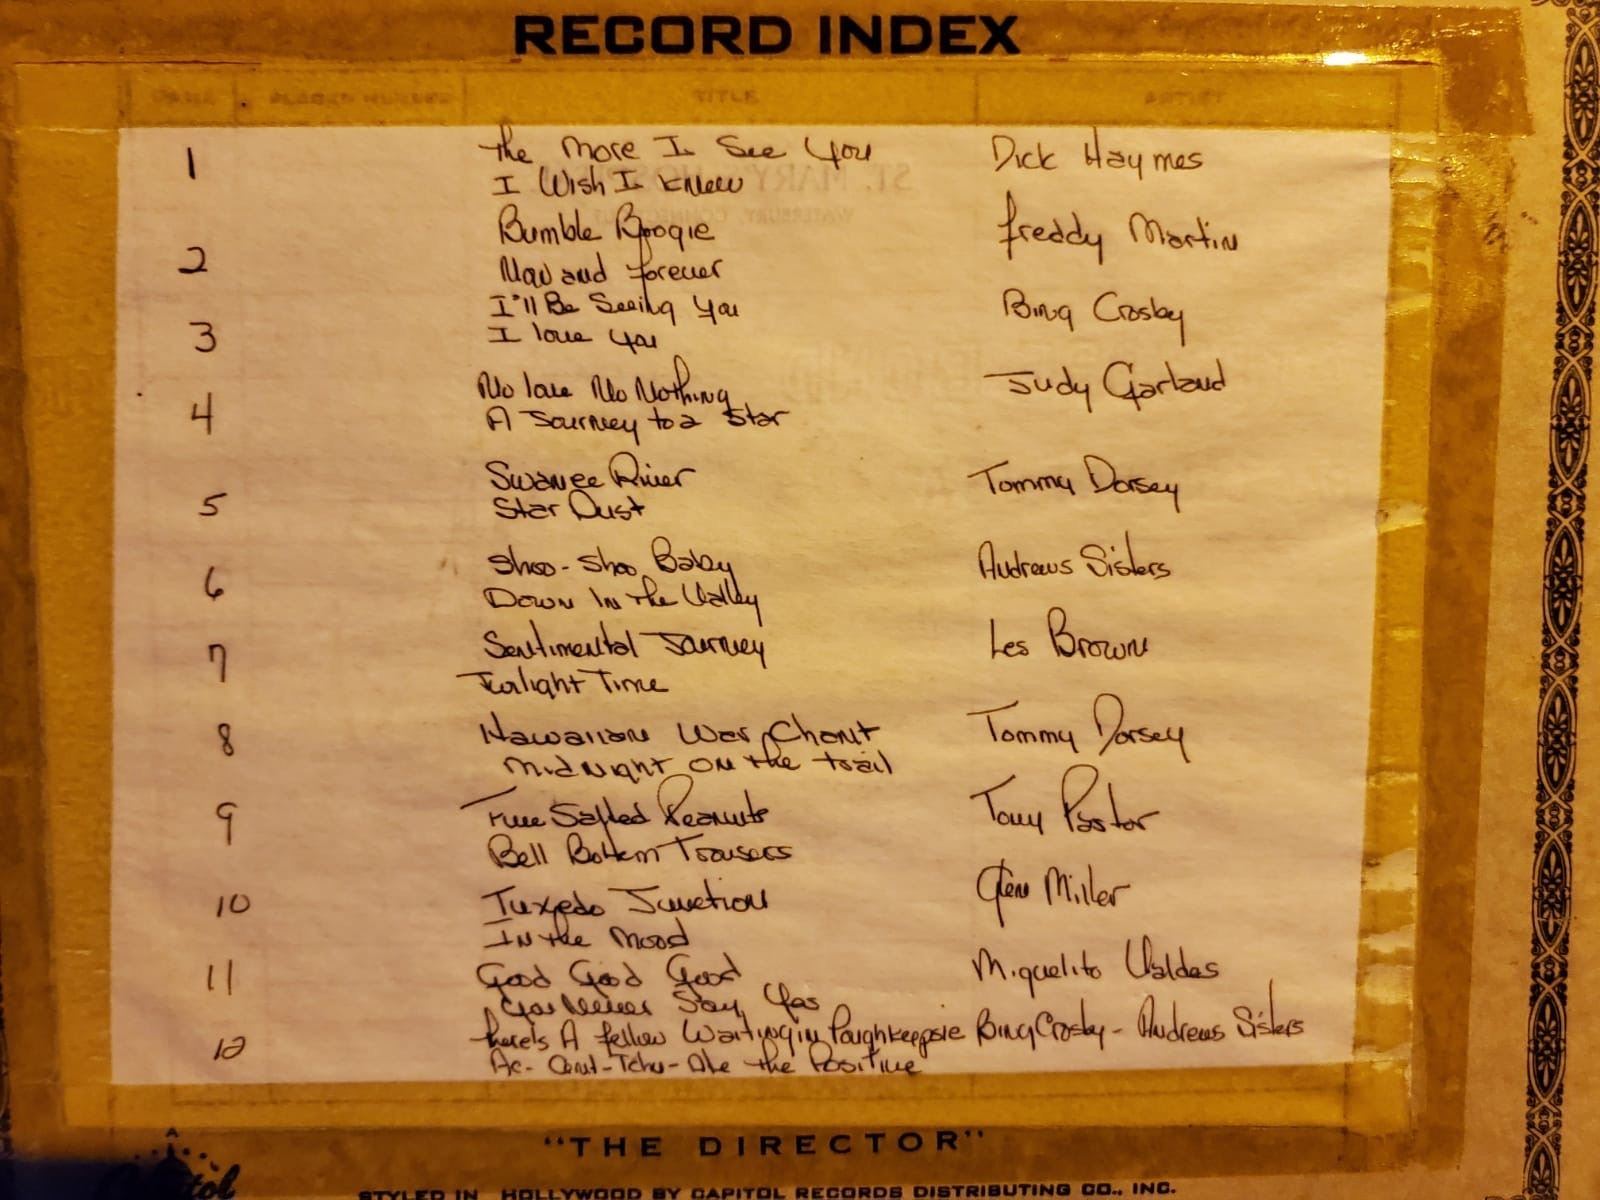 RECORD INDEX
TITLE ARTIST
1 The More I See You Dick Haymes
I Wish I Knew
Bumble Boogie Freddy Martin
2 Now and Forever
I'll Be Seeing You Bing Crosby
3 I love you
No love No Nothing Judy Garland
4 A Journey to a Star
Swanee River Tommy Dorsey
5 Star Dust
Shoo-Shoo Baby Andrews Sisters
6 Down In the Valley
7 Sentimental Journey Les Brown
Twilight Time
8 Hawaiian War Chant Tommy Dorsey
Midnight on the trail
9 Five Salted Peanuts Tony Pastor
Bell Bottom Trousers
10 Tuxedo Junction Glen Miller
In the Mood
11 Good Good Good Miguelito Valdes
You Never Say Yes
there's A fellow Waiting in Poughkeepsie Bing Crosby - Andrews Sisters
12 Ac-Cent-Tchu-Ate the Positive
"THE DIRECTOR"
Capitol
STYLED IN HOLLYWOOD BY CAPITOL RECORDS DISTRIBUTING CO., INC.